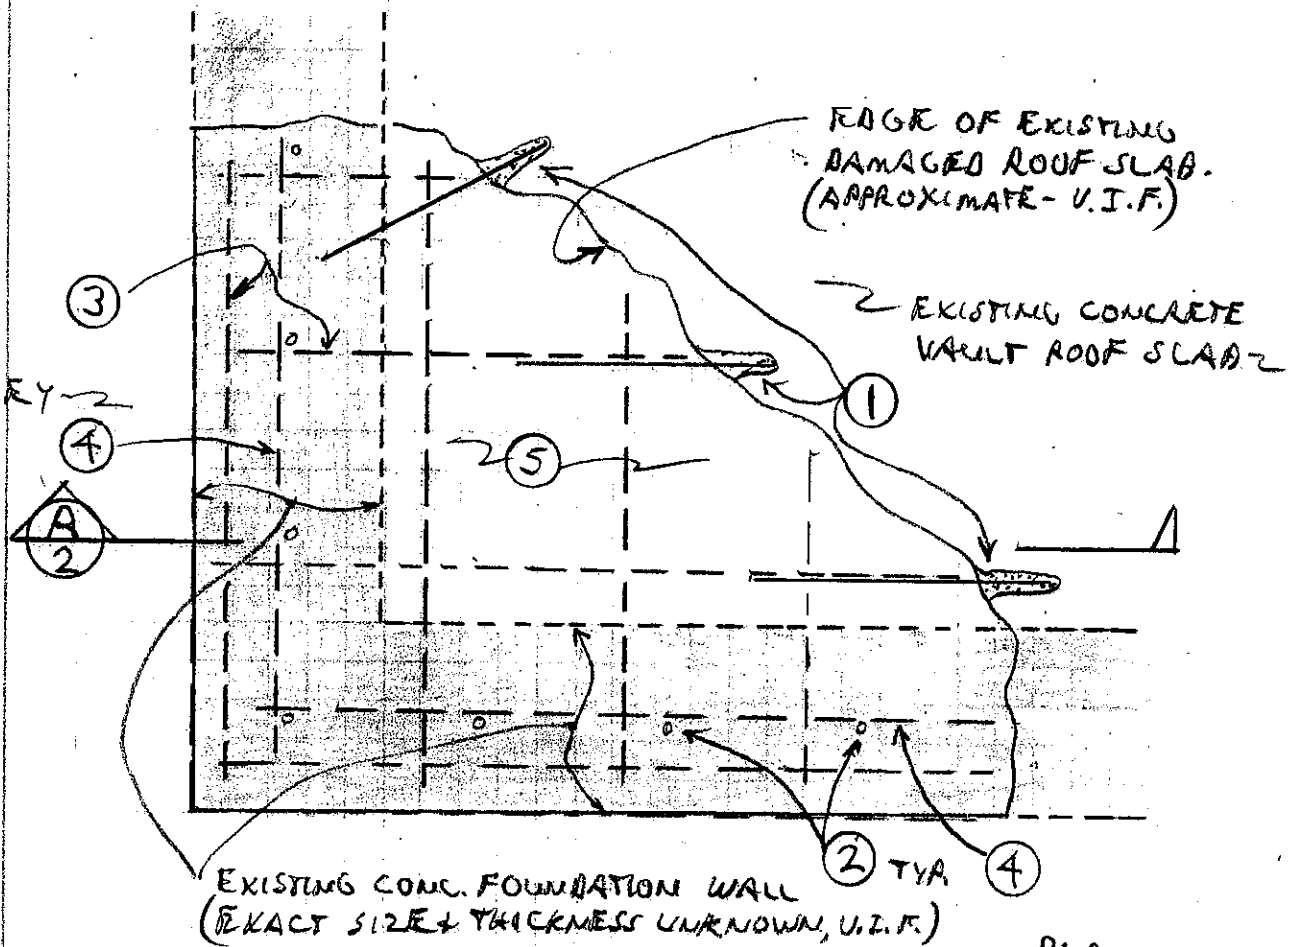 EDGE OF EXISTING
DAMAGED ROOF SLAB.
(APPROXIMATE - V.I.F.)
3
EXISTING CONCRETE
VAULT ROOF SLAB
EY
1
4
5
A
2
2 TYP.
4
EXISTING CONC. FOUNDATION WALL
(EXACT SIZE & THICKNESS UNKNOWN, V.I.F.)